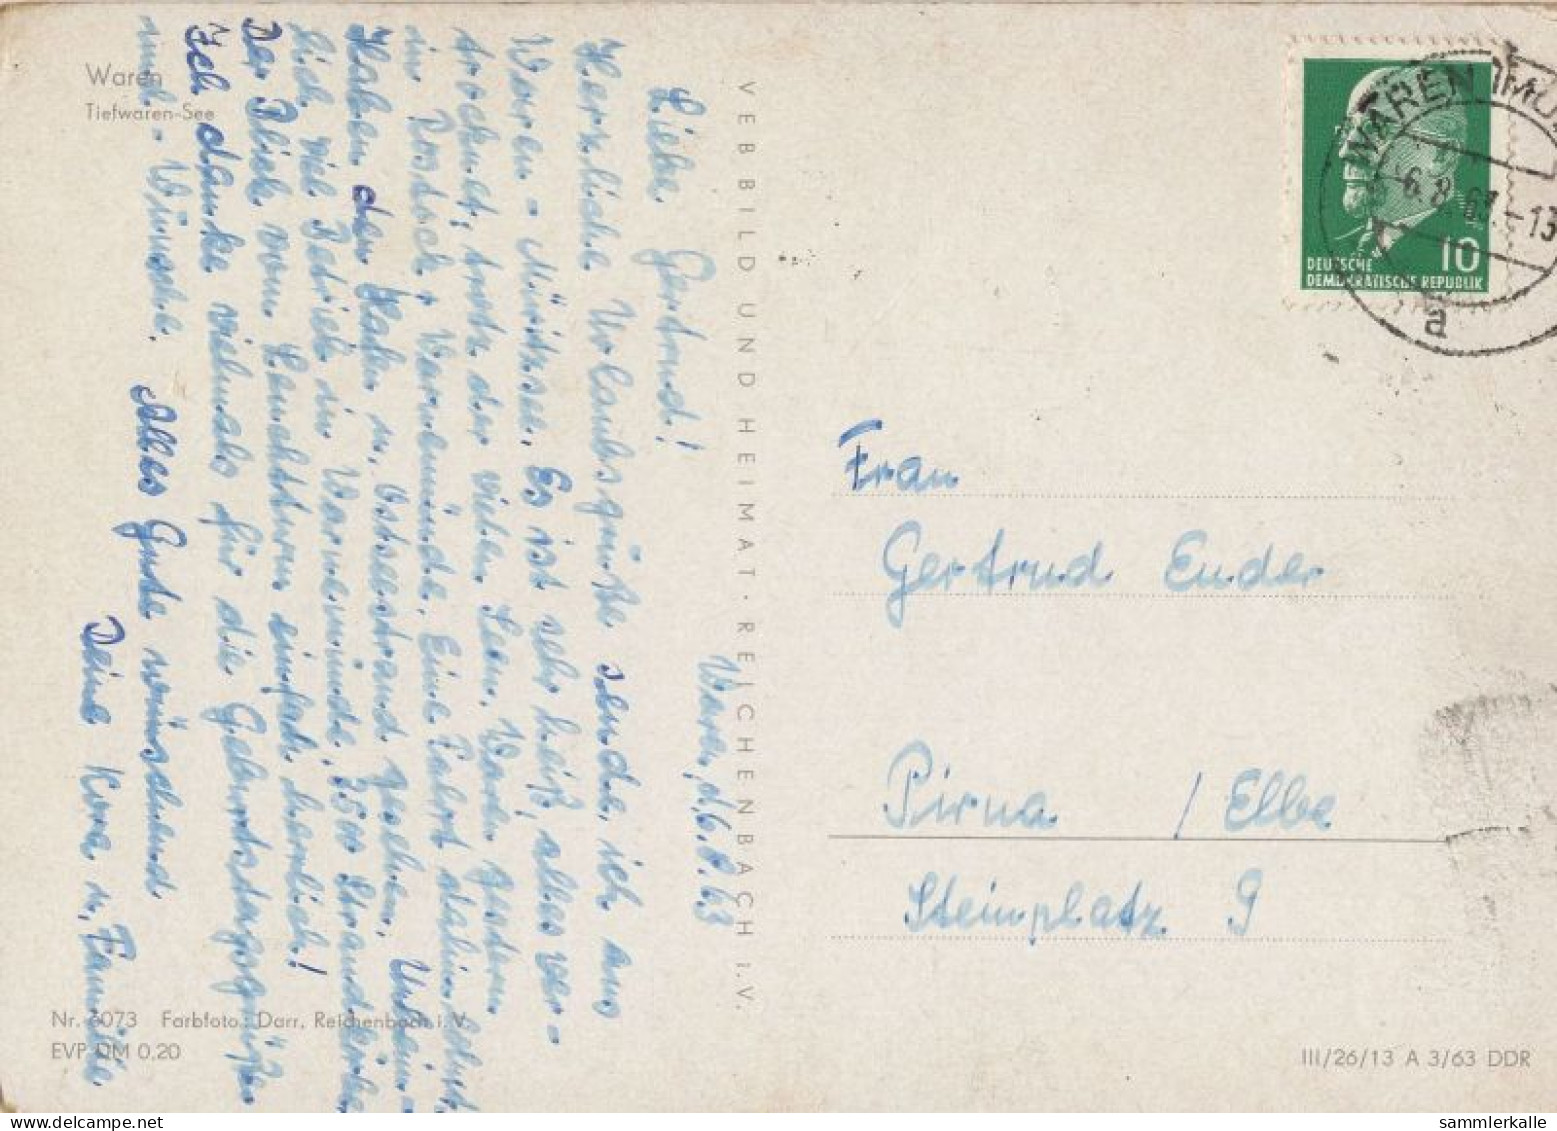 Waren
Tiefwaren-See
Waren, d. 6.8.63
Liebe Gertrud!
Herzliche Urlaubsgrüße sende ich aus
Waren-Müritzsee. Es ist sehr heiß, alles ver-
trocknet, trotz der vielen Seen. Waren gestern
in Rostock u. Warnemünde. Eine Fahrt dahin lohnt.
Haben den Hafen u. Ostseestrand gesehen.
lich viel Betrieb in Warnemünde, 3500 Strandkörbe
Der Blick vom Leuchtturm einfach herrlich!
Ich danke vielmals für die Geburtstagsgrüße
und - Wünsche. Alles Gute wünschend
Deine Kora u. Familie
VEB BILD UND HEIMAT · REICHENBACH i. V.
Nr. 6073 Farbfoto: Darr, Reichenbach i. V.
EVP DM 0,20
WAREN (MÜ
-6.8.63.-13
a
10
DEUTSCHE
DEMOKRATISCHE REPUBLIK
Frau
Gertrud Ender
Pirna / Elbe
Steinplatz 9
III/26/13 A 3/63 DDR
sammlerkalle